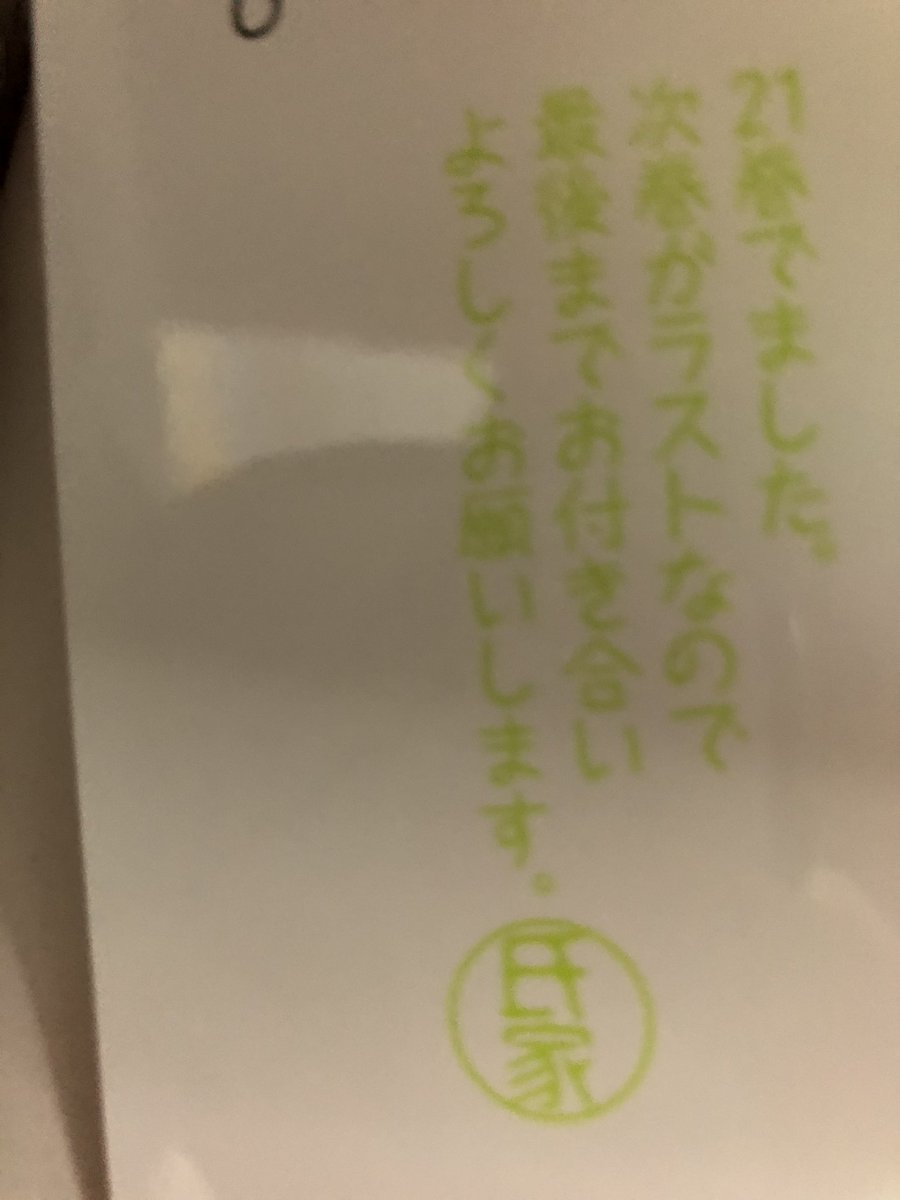 21巻でました。
次巻がラストなので
最後までお付き合い
よろしくお願いします。
氏家